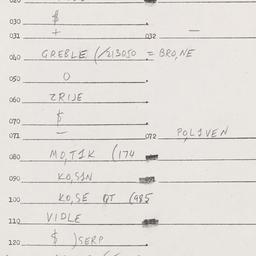 030 $
031 + 032 —
040 GREBLE (/213050 = BRO,NE
050 O
060 ZRIJE
070 $
071 — 072 PO,LIVEN
080 MO,TIK (174
090 KO,SIN
100 KO,SE QT (985
110 VIDLE
120 $ )SERP